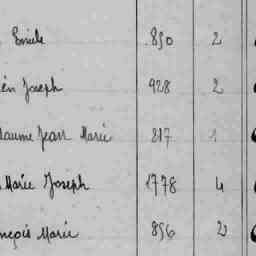 Emile 830 2
en Joseph 928 2
laume Jean Marie 817 1
Marie Joseph 1778 4
nçois Marie 856 2